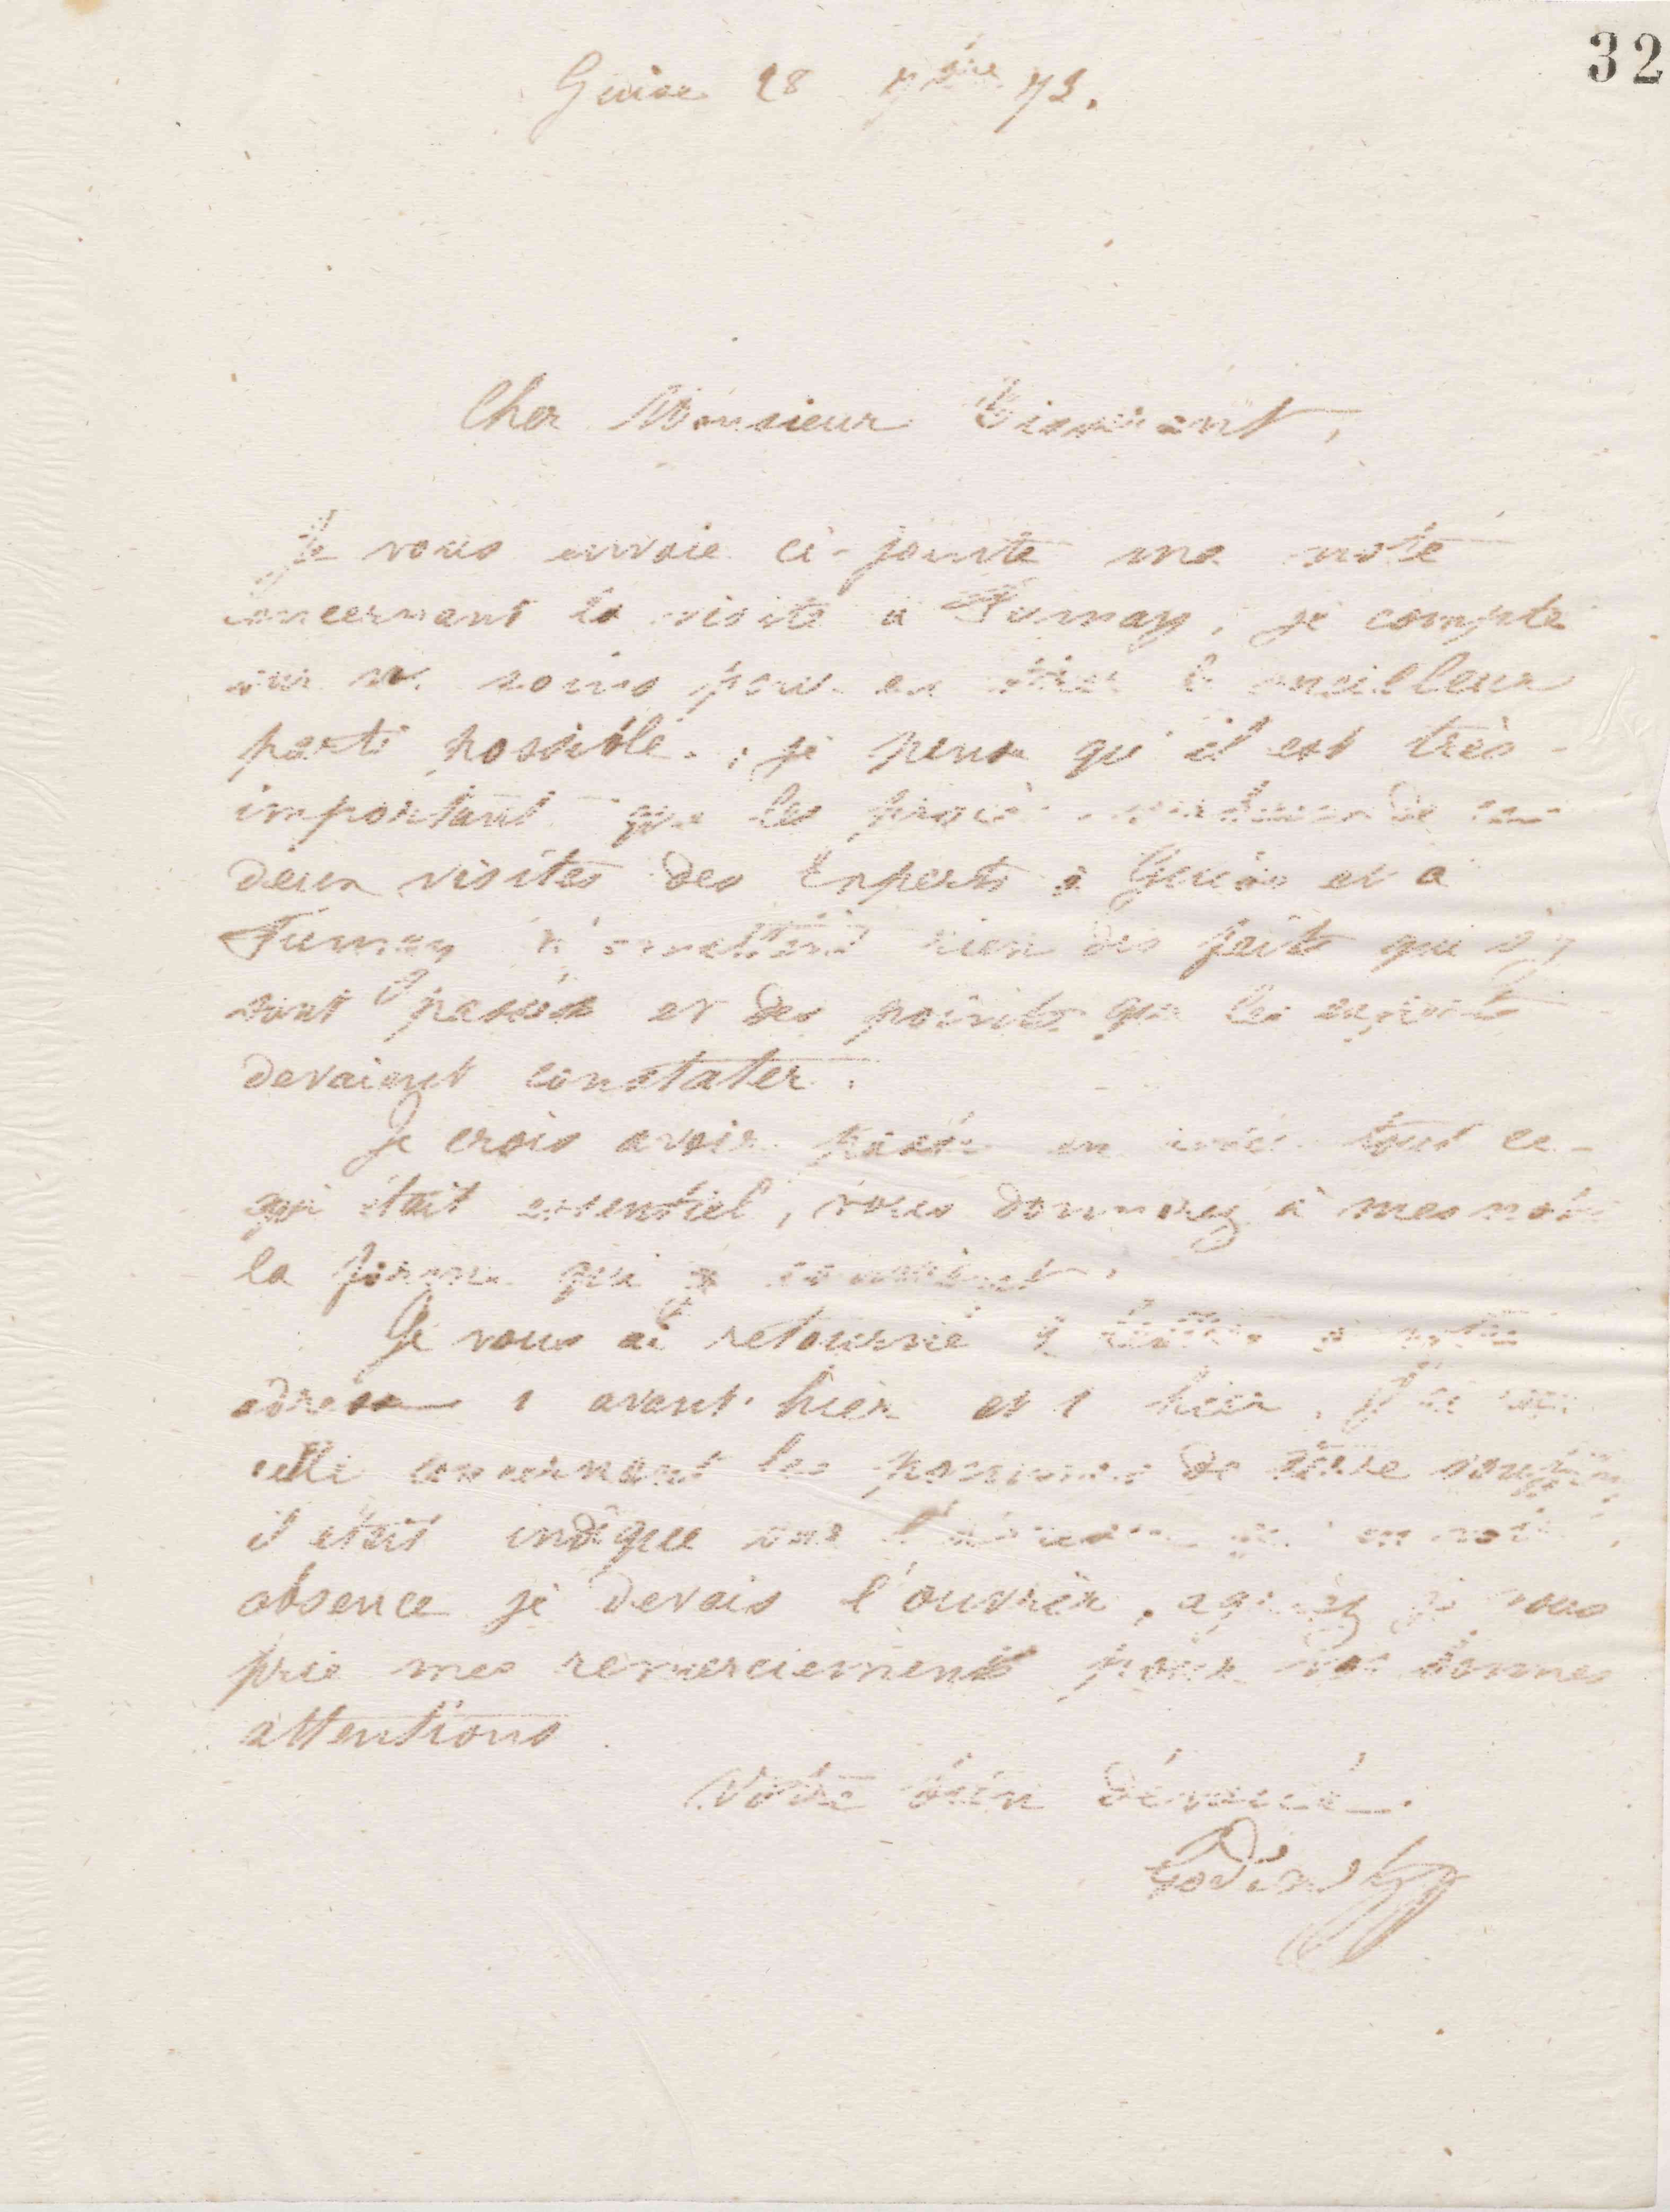 32
Guise 28 9bre 73.
Cher Monsieur Tisserant,
Je vous envoie ci-jointe ma note
concernant la visite à Fumay, je compte
sur vos soins pour en tirer le meilleur
parti possible. je pense qu'il est très
important que les procès verbaux de ces
deux visites des Experts à Guise et à
Fumay n'omettent rien des faits qui s'y
sont passés et des points que les experts
devaient constater.
Je crois avoir passé en tout ce
qui était essentiel, vous donnerez à mes notes
la forme qui convient.
Je vous ai retourné 2 lettres à votre
adresse 1 avant-hier et 1 hier. J'ai
celle concernant les pommes de terre
il était indiqué sur l'adresse qu'en votre
absence je devais l'ouvrir, agréez je vous
prie mes remerciements pour vos bonnes
attentions
Votre bien dévoué.
Godin